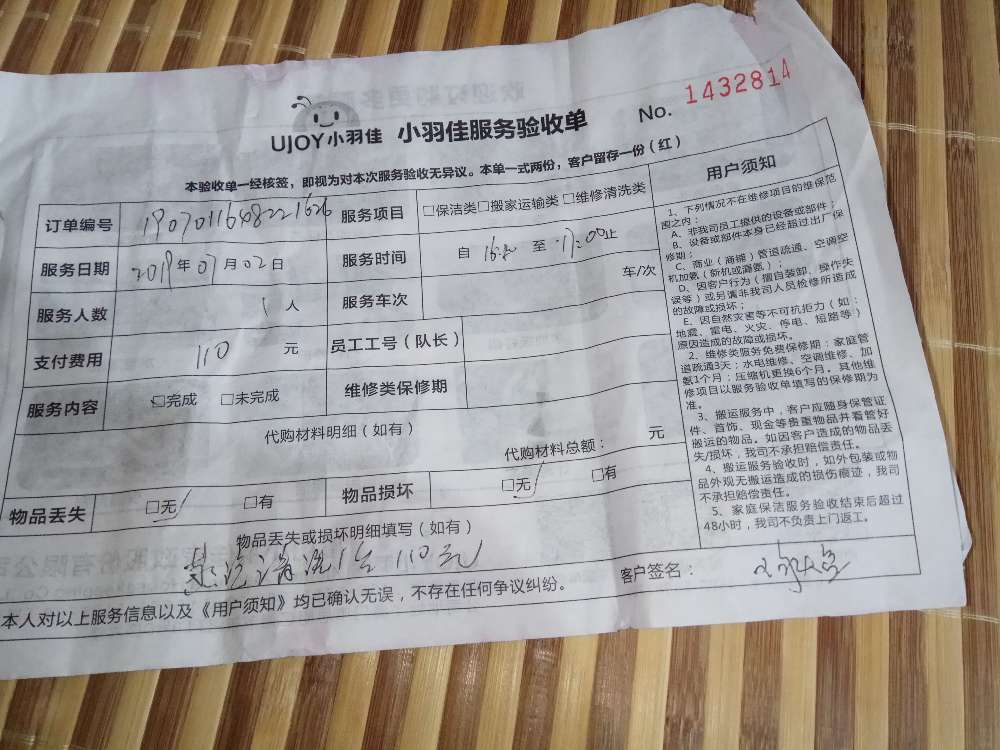 UJOY小羽佳 小羽佳服务验收单 No. 1432814
本验收单一经核签，即视为对本次服务验收无异议。本单一式两份，客户留存一份（红）
订单编号 1907011648221626 服务项目 □保洁类□搬家运输类□维修清洗类
服务日期 2019年07月02日 服务时间 自 至 17:00止
服务人数 1人 服务车次 车/次
支付费用 110 元 员工工号（队长）
服务内容 □完成 □未完成 维修类保修期
代购材料明细（如有）
代购材料总额： 元
物品丢失 □无 □有 物品损坏 □无 □有
物品丢失或损坏明细填写（如有）
清洗1台110元
本人对以上服务信息以及《用户须知》均已确认无误，不存在任何争议纠纷。 客户签名：
用户须知
1、下列情况不在维修项目的维保范
围之内：
A、非我司员工提供的设备或部件；
B、设备或部件本身已经超过出厂保
修期；
C、商业（商铺）管道疏通、空调空
机加氨（新机或漏氨）；
D、因客户行为（擅自装卸、操作失
误等）或另请非我司人员检修所造成
的故障或损坏；
E、因自然灾害等不可抗拒力（如：
地震、雷电、火灾、停电、短路等）
原因造成的故障或损坏。
2、维修类服务免费保修期：家庭管
道疏通3天；水电维修、空调维修、加
氨1个月；压缩机更换6个月。其他维
修项目以服务验收单填写的保修期为
准。
3、搬运服务中，客户应随身保管证
件、首饰、现金等贵重物品并看管好
搬运的物品。如因客户造成的物品丢
失/损坏，我司不承担赔偿责任。
4、搬运服务验收时，如外包装或物
品外观无搬运造成的损伤痕迹，我司
不承担赔偿责任。
5、家庭保洁服务验收结束后超过
48小时，我司不负责上门返工。